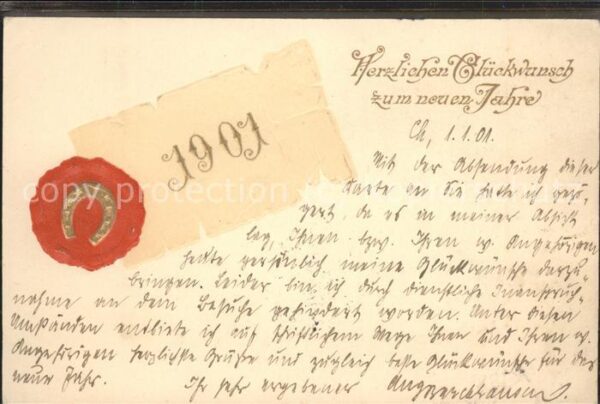 Herzlichen Glückwunsch
zum neuen Jahre
1901
Ch, 1.1.01.
Mit der Absendung dieser
Karte an Sie hatte ich gezö-
gert, da es in meiner Absicht
lag, Ihnen bzw. Ihren w. Angehörigen
heute persönlich meine Glückwünsche darzu-
bringen. Leider bin ich durch dienstliche Inanspruch-
nahme an dem Besuche gehindert worden. Unter diesen
Umständen entbiete ich auf schriftlichem Wege Ihnen und Ihren w.
Angehörigen herzlichste Grüße und zugleich beste Glückwünsche für das
neue Jahr. Ihr sehr ergebener
copy protection